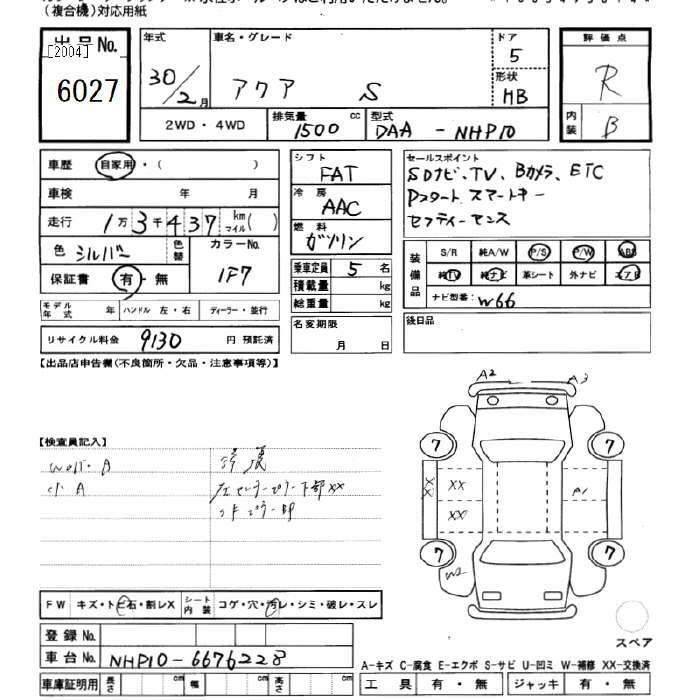 (複合機)対応用紙
出品No.
[2004]
6027
年式 30/2月
車名・グレード アクア S
ドア 5
形状 HB
評価点 R
内装 B
2WD・4WD
排気量 1500 cc
型式 DAA - NHP10
車歴 自家用・( )
車検 年 月
走行 1万3千437 km マイル( )
色 シルバー 色替
カラーNo. 1F7
保証書 有・無
モデル年式 年 ハンドル 左・右 ディーラー・並行
リサイクル料金 9130 円 預託済
シフト FAT
冷房 AAC
燃料 ガソリン
乗車定員 5 名
積載量 kg
総重量 kg
名変期限 月 日
セールスポイント
SDナビ、TV、Bカメラ、ETC
Pスタート スマートキー
セフティーセンス
装備品
S/R 純A/W P/S P/W ABS
純TV 純ナビ 革シート 外ナビ エアB
ナビ型番: W66
後日品
【出品店申告欄(不良箇所・欠品・注意事項等)】
【検査員記入】
小 A
修復
左センターピラー下部XX
A2 A3
7 7
XX
XX
XX
A1
7 7
W2
スペア
FW キズ・トビ石・割レX シート内装 コゲ・穴・汚レ・シミ・破レ・スレ
登録No.
車台No. NHP10-6676228
車庫証明用 長さ cm 幅 cm 高さ cm
A-キズ C-腐食 E-エクボ S-サビ U-凹ミ W-補修 XX-交換済
工具 有・無 ジャッキ 有・無